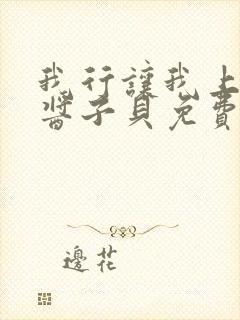 我行讓我上
醬子貝免費
邊花